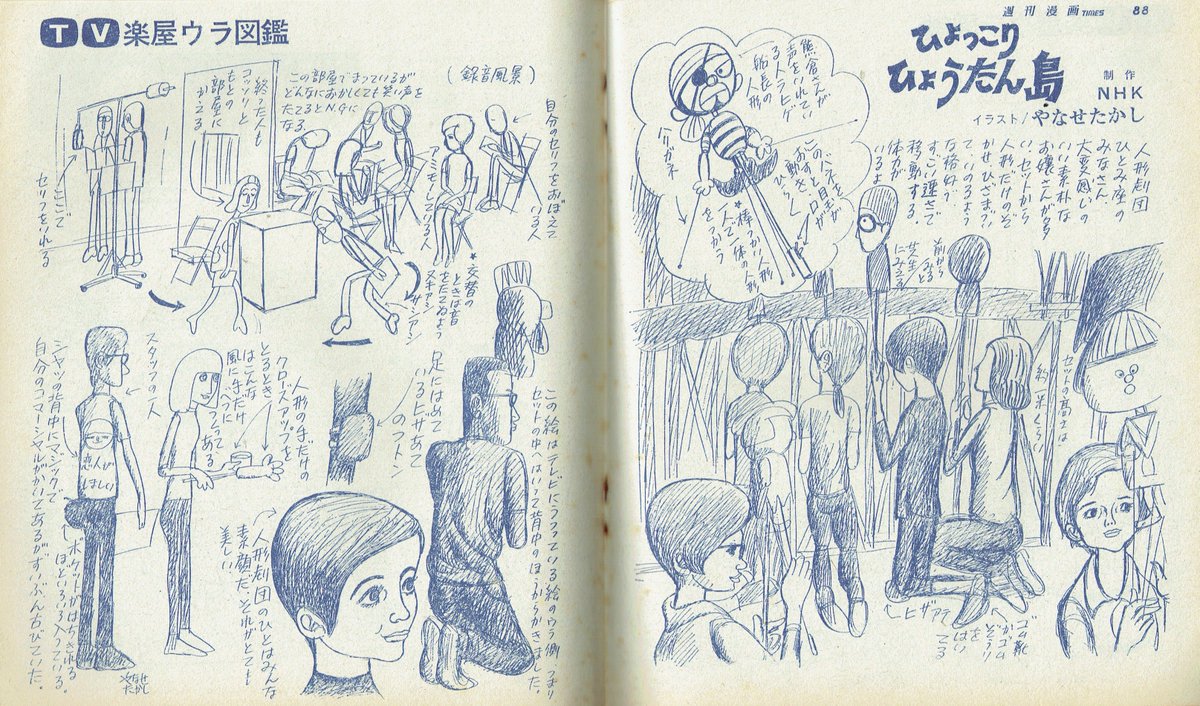 週刊漫画TIMES 88
ひょっこり
ひょうたん島
制作
NHK
イラスト/やなせたかし
人形劇団
ひとみ座の
みなさん
大変感じの
いい素朴な
お嬢さんがた
セットから
人形だけのぞ
かせひざまづい
ているのよう
な格好で
すごい速さで
移動する。
体力が
いるよ
熊倉さんが
声をいれてい
るトラヒゲ
船長の
人形
ハリガネ
この
ひらく
★棒つかい人形
一人で一体の人形
をつかう
前から
みると
にみえる
セットの高さは
約一米ぐらい
ヒザアテ
ゴム靴
かゴム
ぞうり
を
はい
てる
TV楽屋ウラ図鑑
(録音風景)
自分のセリフをおぼえて
いる人
この部屋でまっているが
どんなにおかしくても笑い声を
たてるとNGに
なる。
終った人も
コッソリと
もとの
部屋に
かえる
ここで
セリフをいれる
アミモノしている人
★交替の
ときは音
をたてぬよう
ヌキアシ
サシアシ
この絵はテレビにうつっている絵のウラ側、つまり
セットの中へはいって背中のほうからかきました。
足にはめて
いるヒザあて
のフトン
人形の手だけの
クローズアップを
とるとき
はこんな
風に手だけ
べつに
つくって
ある
スタッフの一人
恋人が
ほしい
シャツの背中にマジックで
自分のコマーシャルがかいてあるがずいぶん古びていた。
ポケットがはちきれる
ほどいろいろ入っている。
人形劇団のひとはみんな
素顔だ。それがとても
美しい
やなせ
たかし